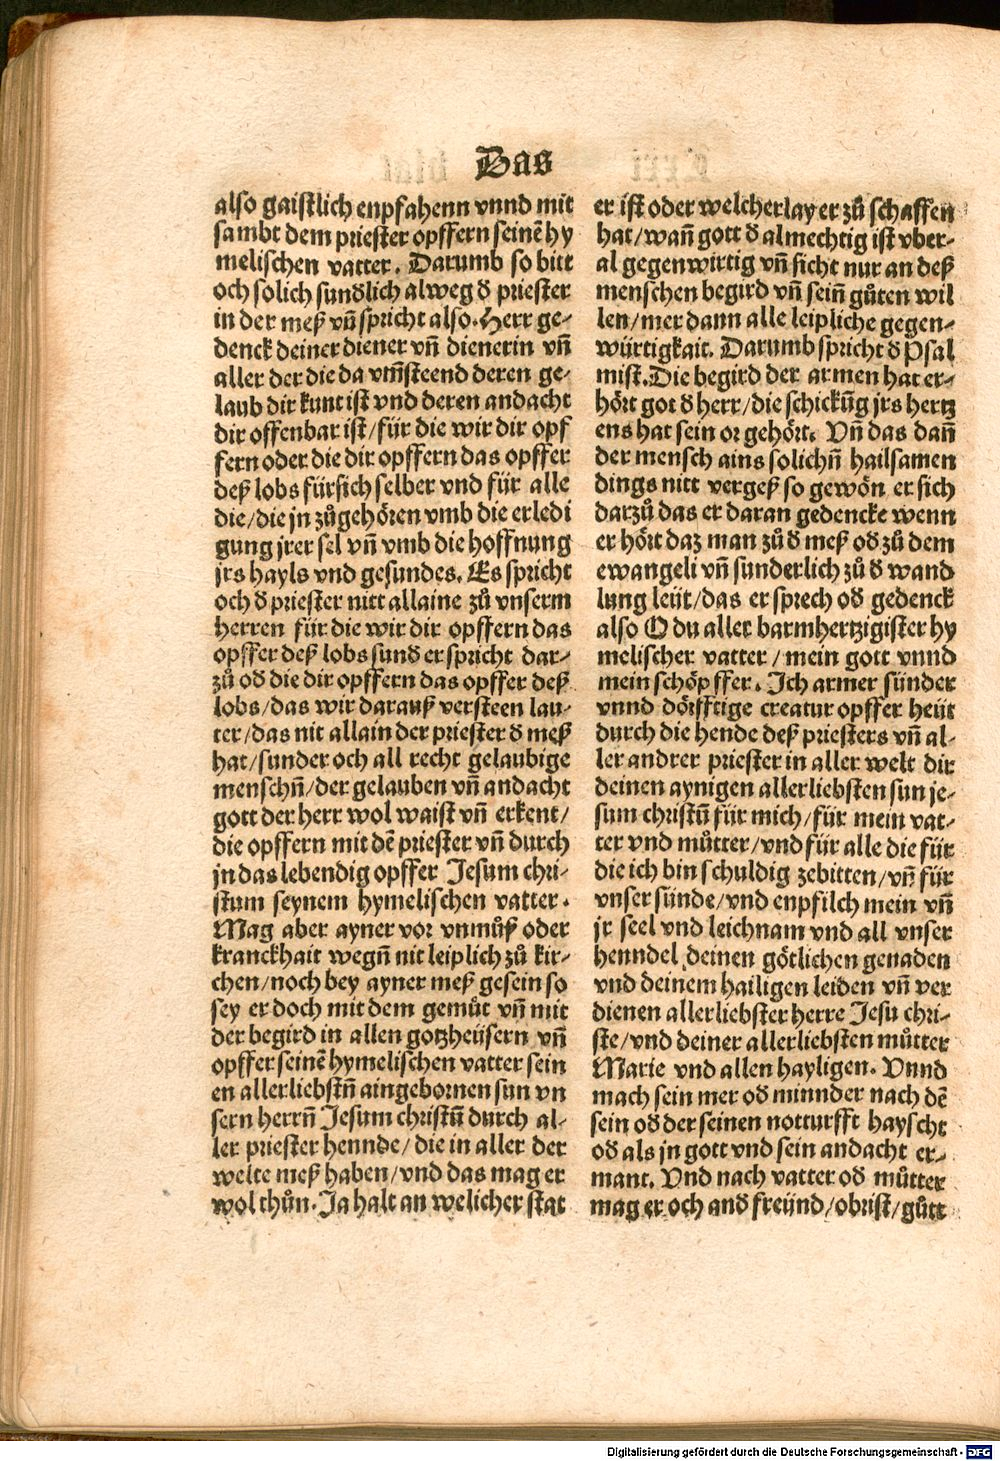 Das
also gaistlich enpfahenn vnnd mit
sambt dem priester opffern seinē hy
melischen vatter. Darumb so bitt
och solich sundlich alweg d̕ priester
in der meß vñ spricht also. Herr ge⸗
denck deiner diener vñ dienerin vñ
aller der die da vm̄steend deren ge⸗
laub dir kunt ist vnd deren andacht
dir offenbar ist/für die wir dir opf
fern oder die dir opffern das opffer
deß lobs fürsich selber vnd für alle
die/die jn zůgehören vmb die erledi
gung jrer sel vñ vmb die hoffnung
jrs hayls vnd gesundes. Es spricht
och d̕ priester nitt allaine zů vnserm
herren für die wir dir opffern das
opffer deß lobs sund̕ er spricht dar⸗
zů od̕ die dir opffern das opffer deß
lobs/das wir darauß versteen lau⸗
ter/das nit allain der priester d̕ meß
hat/sunder och all recht gelaubige
menschñ/der gelauben vñ andacht
gott der herr wol waist vñ erkent/
die opffern mit dē priester vñ durch
jn das lebendig opffer Jesum chri⸗
stum seynem hymelischen vatter.
Mag aber ayner vor vnmůß oder
kranckhait wegñ nit leiplich zů kir⸗
chen/noch bey ayner meß gesein so
sey er doch mit dem gemůt vñ mit
der begird in allen gotzheüsern vñ
opffer seinē hymelischen vatter sein
en allerliebstñ aingebornen sun vn
sern herrñ Jesum christū durch al⸗
ler priester hennde/die in aller der
welte meß haben/vnd das mag er
wol thůn. Ja halt an welicher stat
er ist oder welcherlay er zů schaffen
hat/wañ gott d̕ almechtig ist vber⸗
al gegenwirtig vñ sicht nur an deß
menschen begird vñ seiñ gůten wil
len/mer dann alle leipliche gegen⸗
würtigkait. Darumb spricht d̕ Psal
mist. Die begird der armen hat er⸗
hört got d̕ herr/die schickūg jrs hertz
ens hat sein or gehört. Vñ das dañ
der mensch ains solichñ hailsamen
dings nitt vergeß so gewön er sich
darzů das er daran gedencke wenn
er hört daz man zů d̕ meß od̕ zů dem
ewangeli vñ sunderlich zů d̕ wand
lung leüt/das er sprech od̕ gedenck
also O du aller barmhertzigister hy
melischer vatter/mein gott vnnd
mein schöpffer. Ich armer sünder
vnnd dörfftige creatur opffer heüt
durch die hende deß priesters vñ al⸗
ler andrer priester in aller welt dir
deinen aynigen allerliebsten sun je⸗
sum christū für mich/für mein vat⸗
ter vnd můtter/vnd für alle die für
die ich bin schuldig zebitten/vñ für
vnser sünde/vnd enpfilch mein vñ
jr seel vnd leichnam vnd all vnser
henndel deinen götlichen genaden
vnd deinem hailigen leiden vñ ver
dienen allerliebster herre Jesu chri⸗
ste/vnd deiner allerliebsten můtter
Marie vnd allen hayligen. Vnnd
mach sein mer od̕ minnder nach dē
sein od̕ der seinen notturfft hayscht
od̕ als jn gott vnd sein andacht er⸗
mant. Vnd nach vatter od̕ můtter
mag er och and̕ freünd/obrist/gůtt
Digitalisierung gefördert durch die Deutsche Forschungsgemeinschaft - DFG